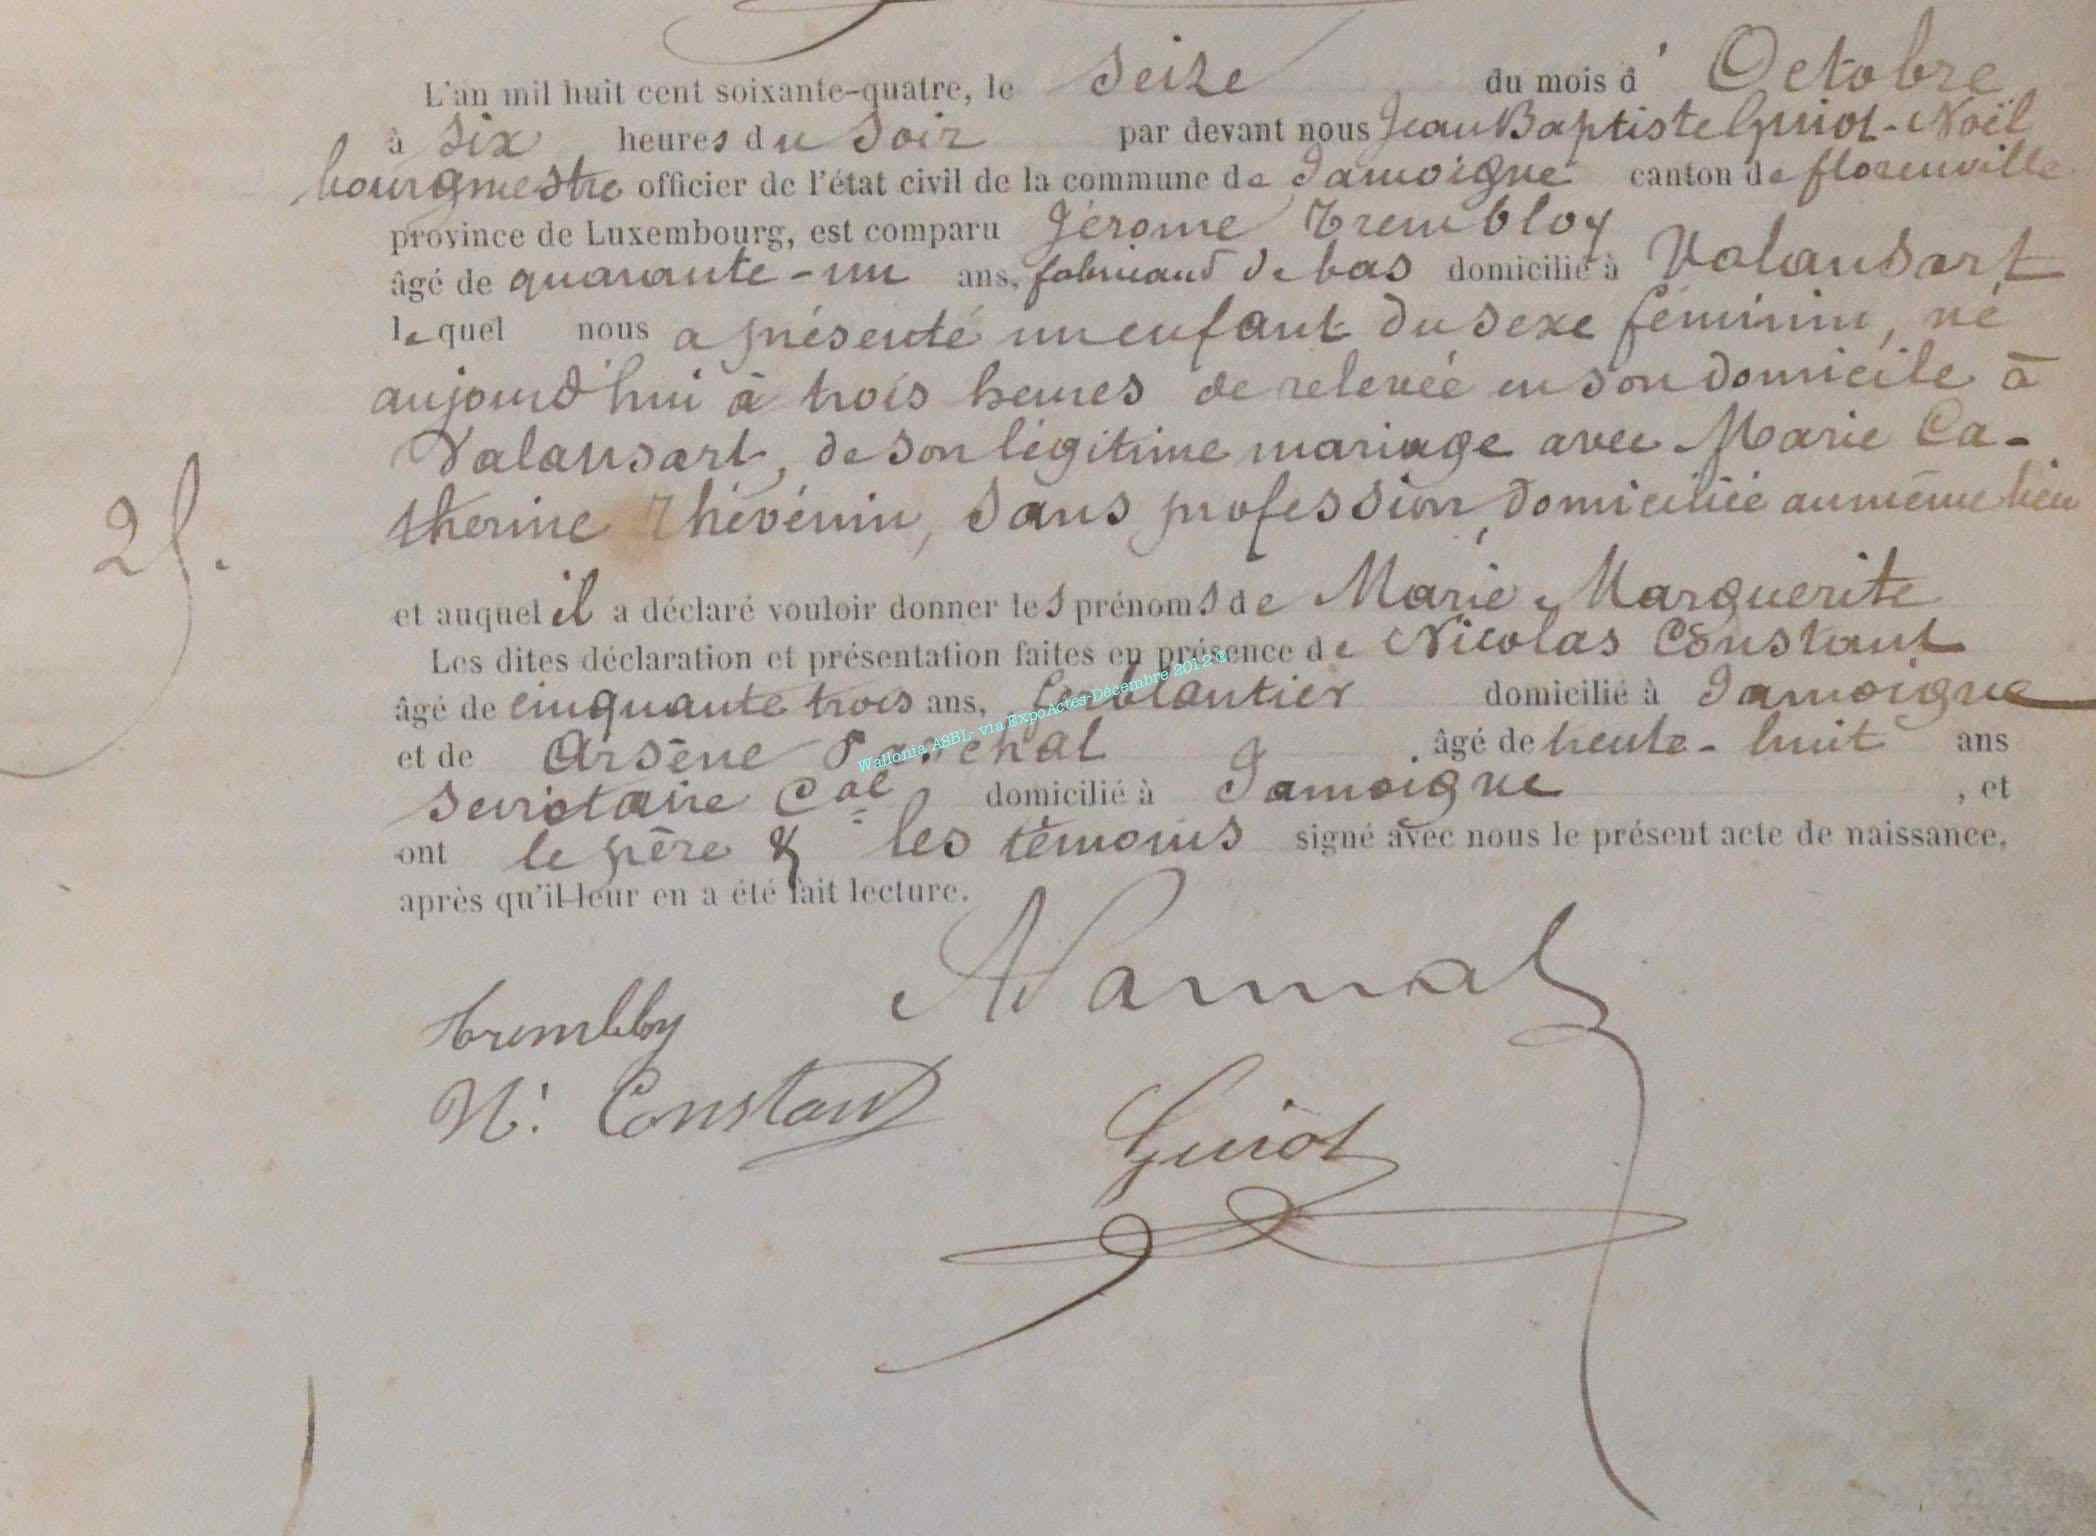 L'an mil huit cent soixante-quatre, le seize du mois d' Octobre
à six heures du soir par devant nous Jean Baptiste Guiot-Noël
bourgmestre officier de l'état civil de la commune de Jamoigne canton de florenville
province de Luxembourg, est comparu Jérome Trembloy
âgé de quarante-un ans, fabricant de bas domicilié à Valansart
lequel nous a présenté un enfant du sexe féminin, né
aujourd'hui à trois heures de relevée en son domicile à
Valansart, de son légitime mariage avec Marie Ca-
therine Thévénin, sans profession, domiciliée au même lieu
25.
et auquel il a déclaré vouloir donner les prénoms de Marie Marguerite
Les dites déclaration et présentation faites en présence de Nicolas Constant
âgé de cinquante trois ans, ferblantier domicilié à Jamoigne
et de Arsène âgé de trente-huit ans
secrétaire Cal domicilié à Jamoigne , et
ont le père & les témoins signé avec nous le présent acte de naissance,
après qu'il leur en a été fait lecture.
Wallonia ASBL- via ExpoActes-Décembre 2012 ©
Trembloy
N. Constant
Guiot